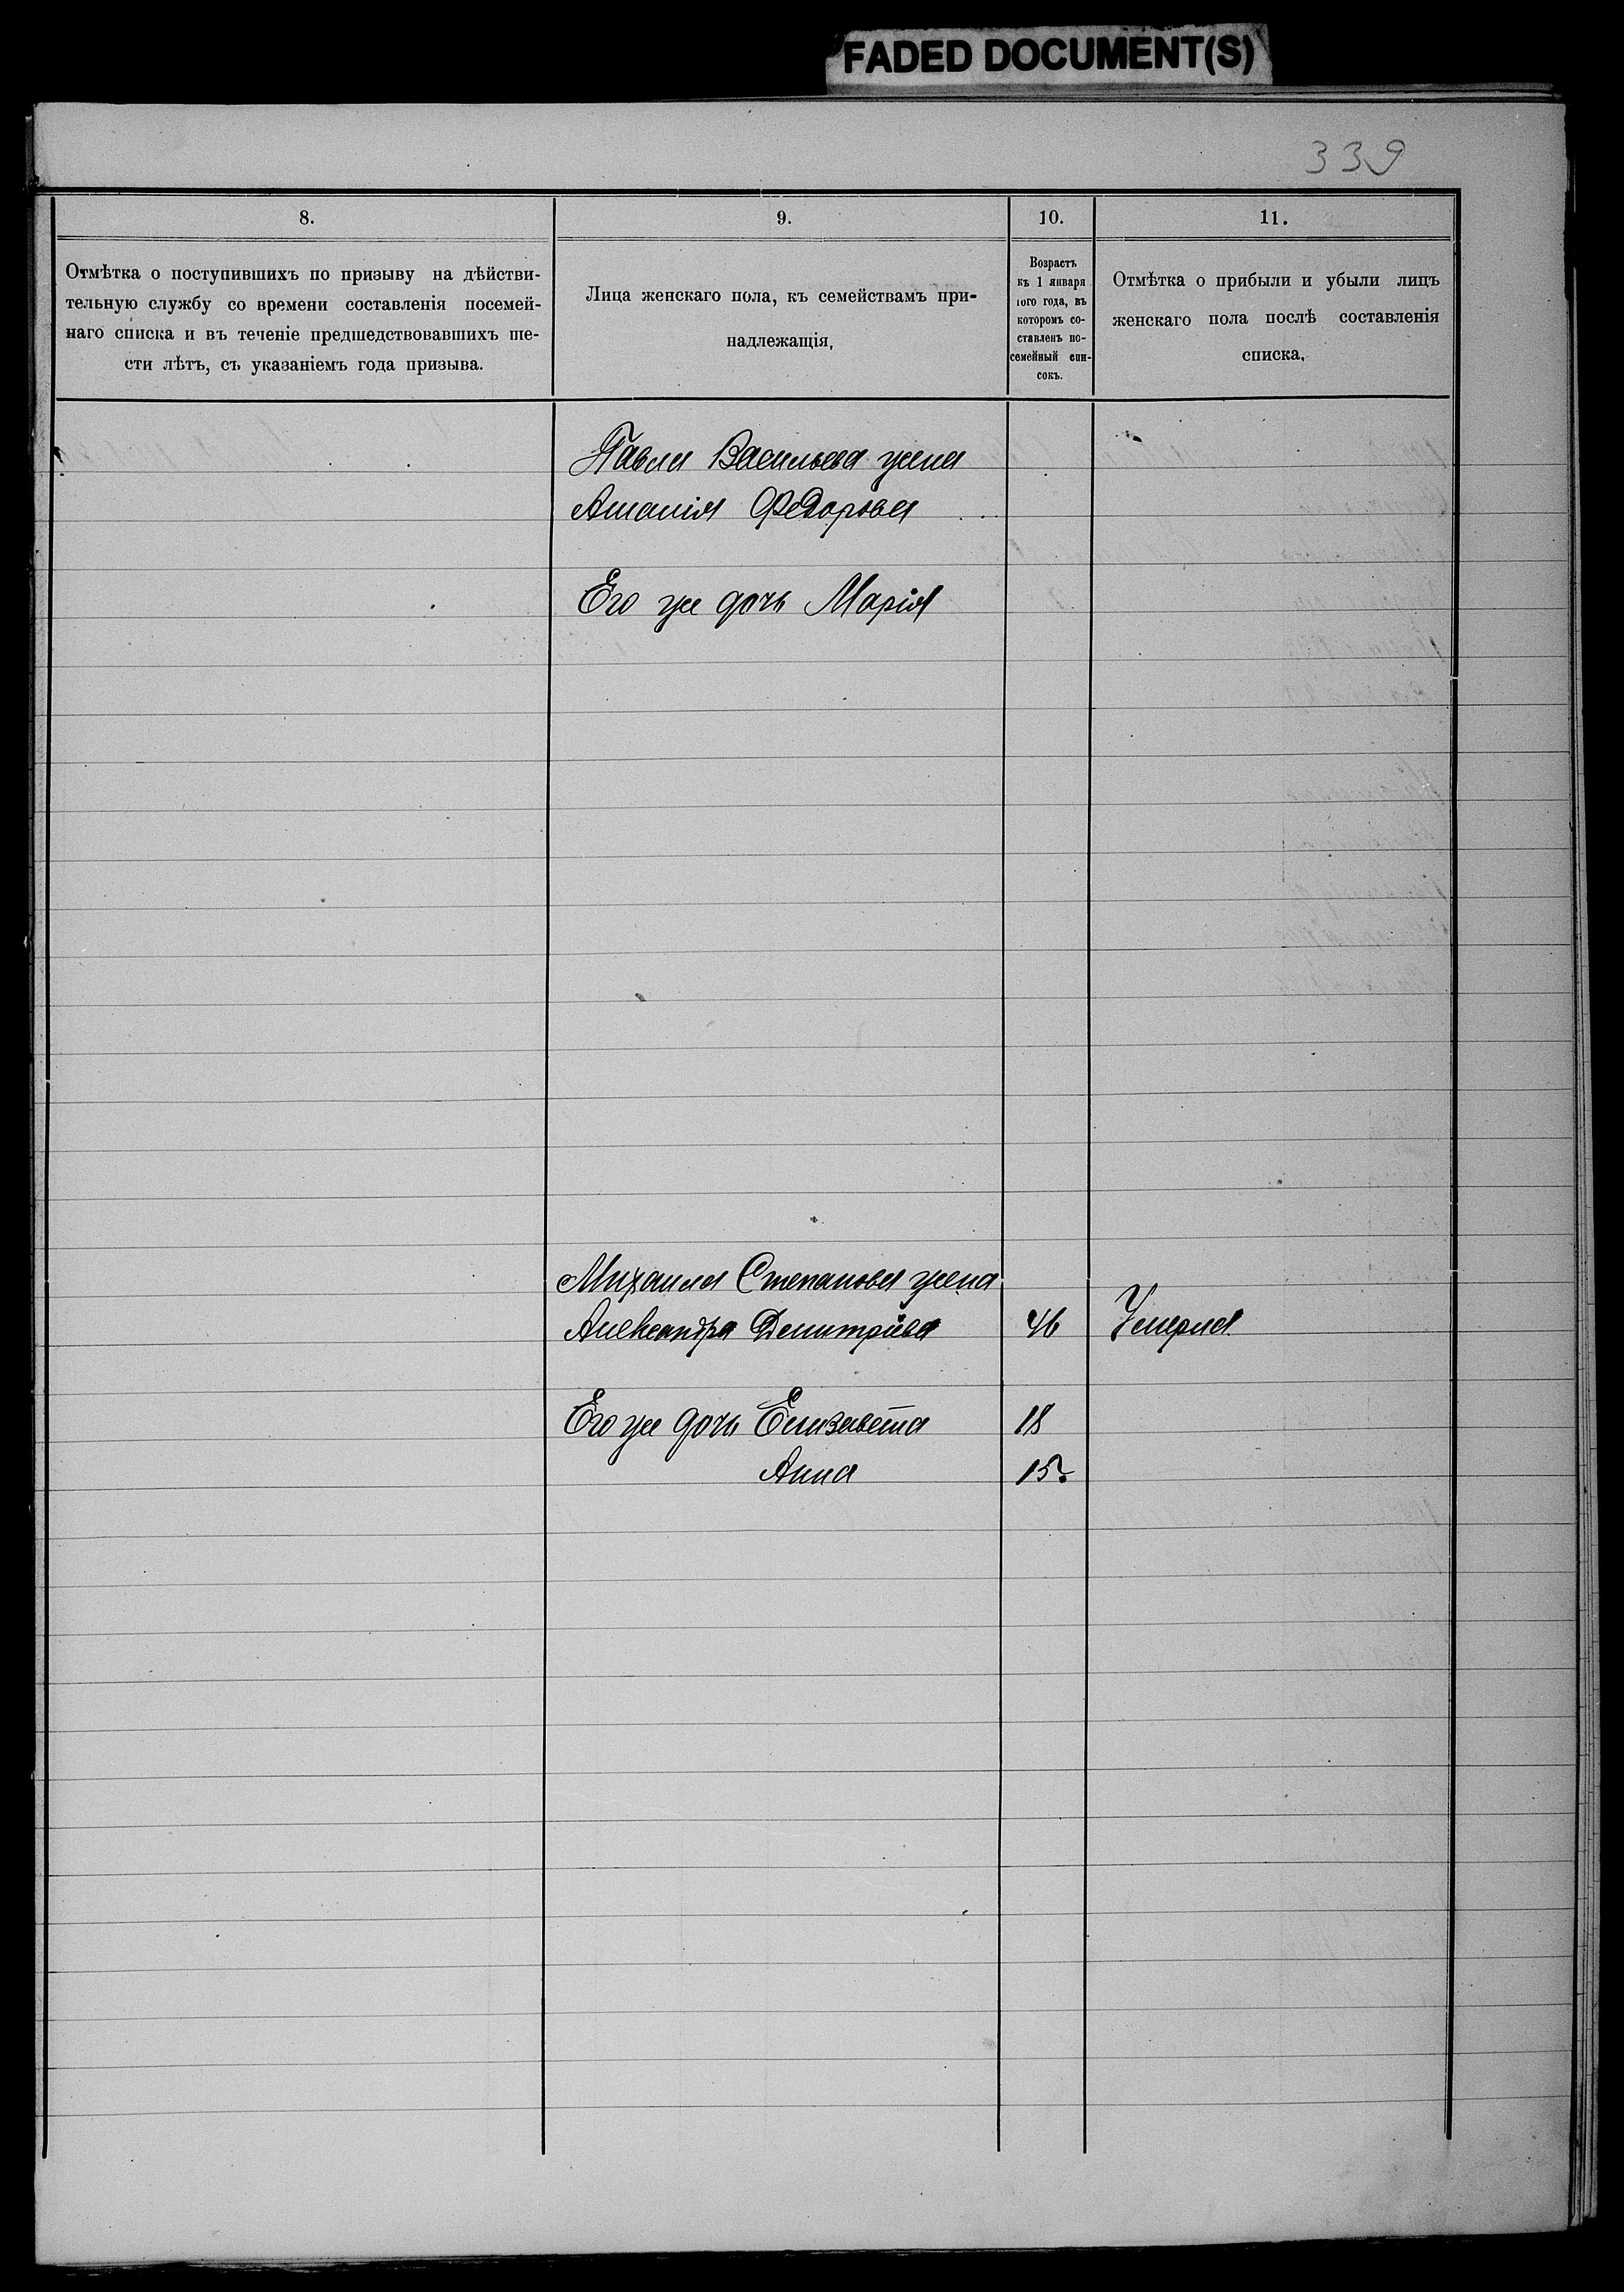 FADED DOCUMENT(S)
339
8.
9.
10.
11.
Отмѣтка о поступившихъ по призыву на дѣйстви-
тельную службу со времени составленія посемей-
наго списка и въ теченіе предшедствовавшихъ ше-
сти лѣтъ, съ указаніемъ года призыва.
Лица женскаго пола, къ семействамъ при-
надлежащія,
Возрастъ
къ 1 января
того года, въ
которомъ со-
ставленъ по-
семейный спи-
сокъ.
Отмѣтка о прибыли и убыли лицъ
женскаго пола послѣ составленія
списка,
Павла Васильева жена
Федорова
Его же дочь Марія
Михаила Степанова жена
Александра Демитріева 46 Умерла.
Его же дочь Елизавета 18
Анна 15